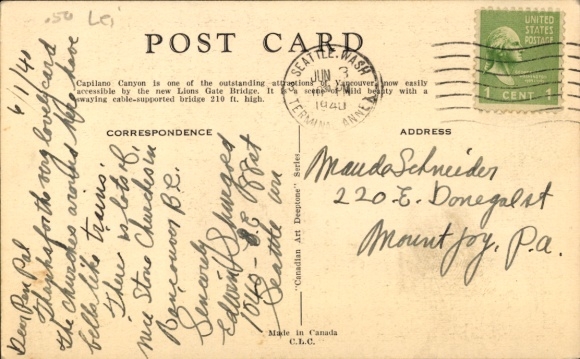 .50 Lei
POST CARD
Capilano Canyon is one of the outstanding attractions of Vancouver, now easily
accessible by the new Lions Gate Bridge. It is a scene of wild beauty with a
swaying cable-supported bridge 210 ft. high.
SEATTLE, WASH.
JUN 3
PM
1940
TERMINAL ANNEX
UNITED
STATES
POSTAGE
1 CENT 1
CORRESPONDENCE
ADDRESS
6/1/40
Dear Pen Pal
Thanks for the very lovely card
the churches around here have
bells like trains.
There is lots of
nice Stone Churches in
Vancouver B.C.
Sincerely
Edwin
1040 - S.E.
Seattle Wn
Mauda Schneider
220 E. Donegal st
Mount Joy, Pa.
"Canadian Art Deeptone" Series
Made in Canada
C.L.C.